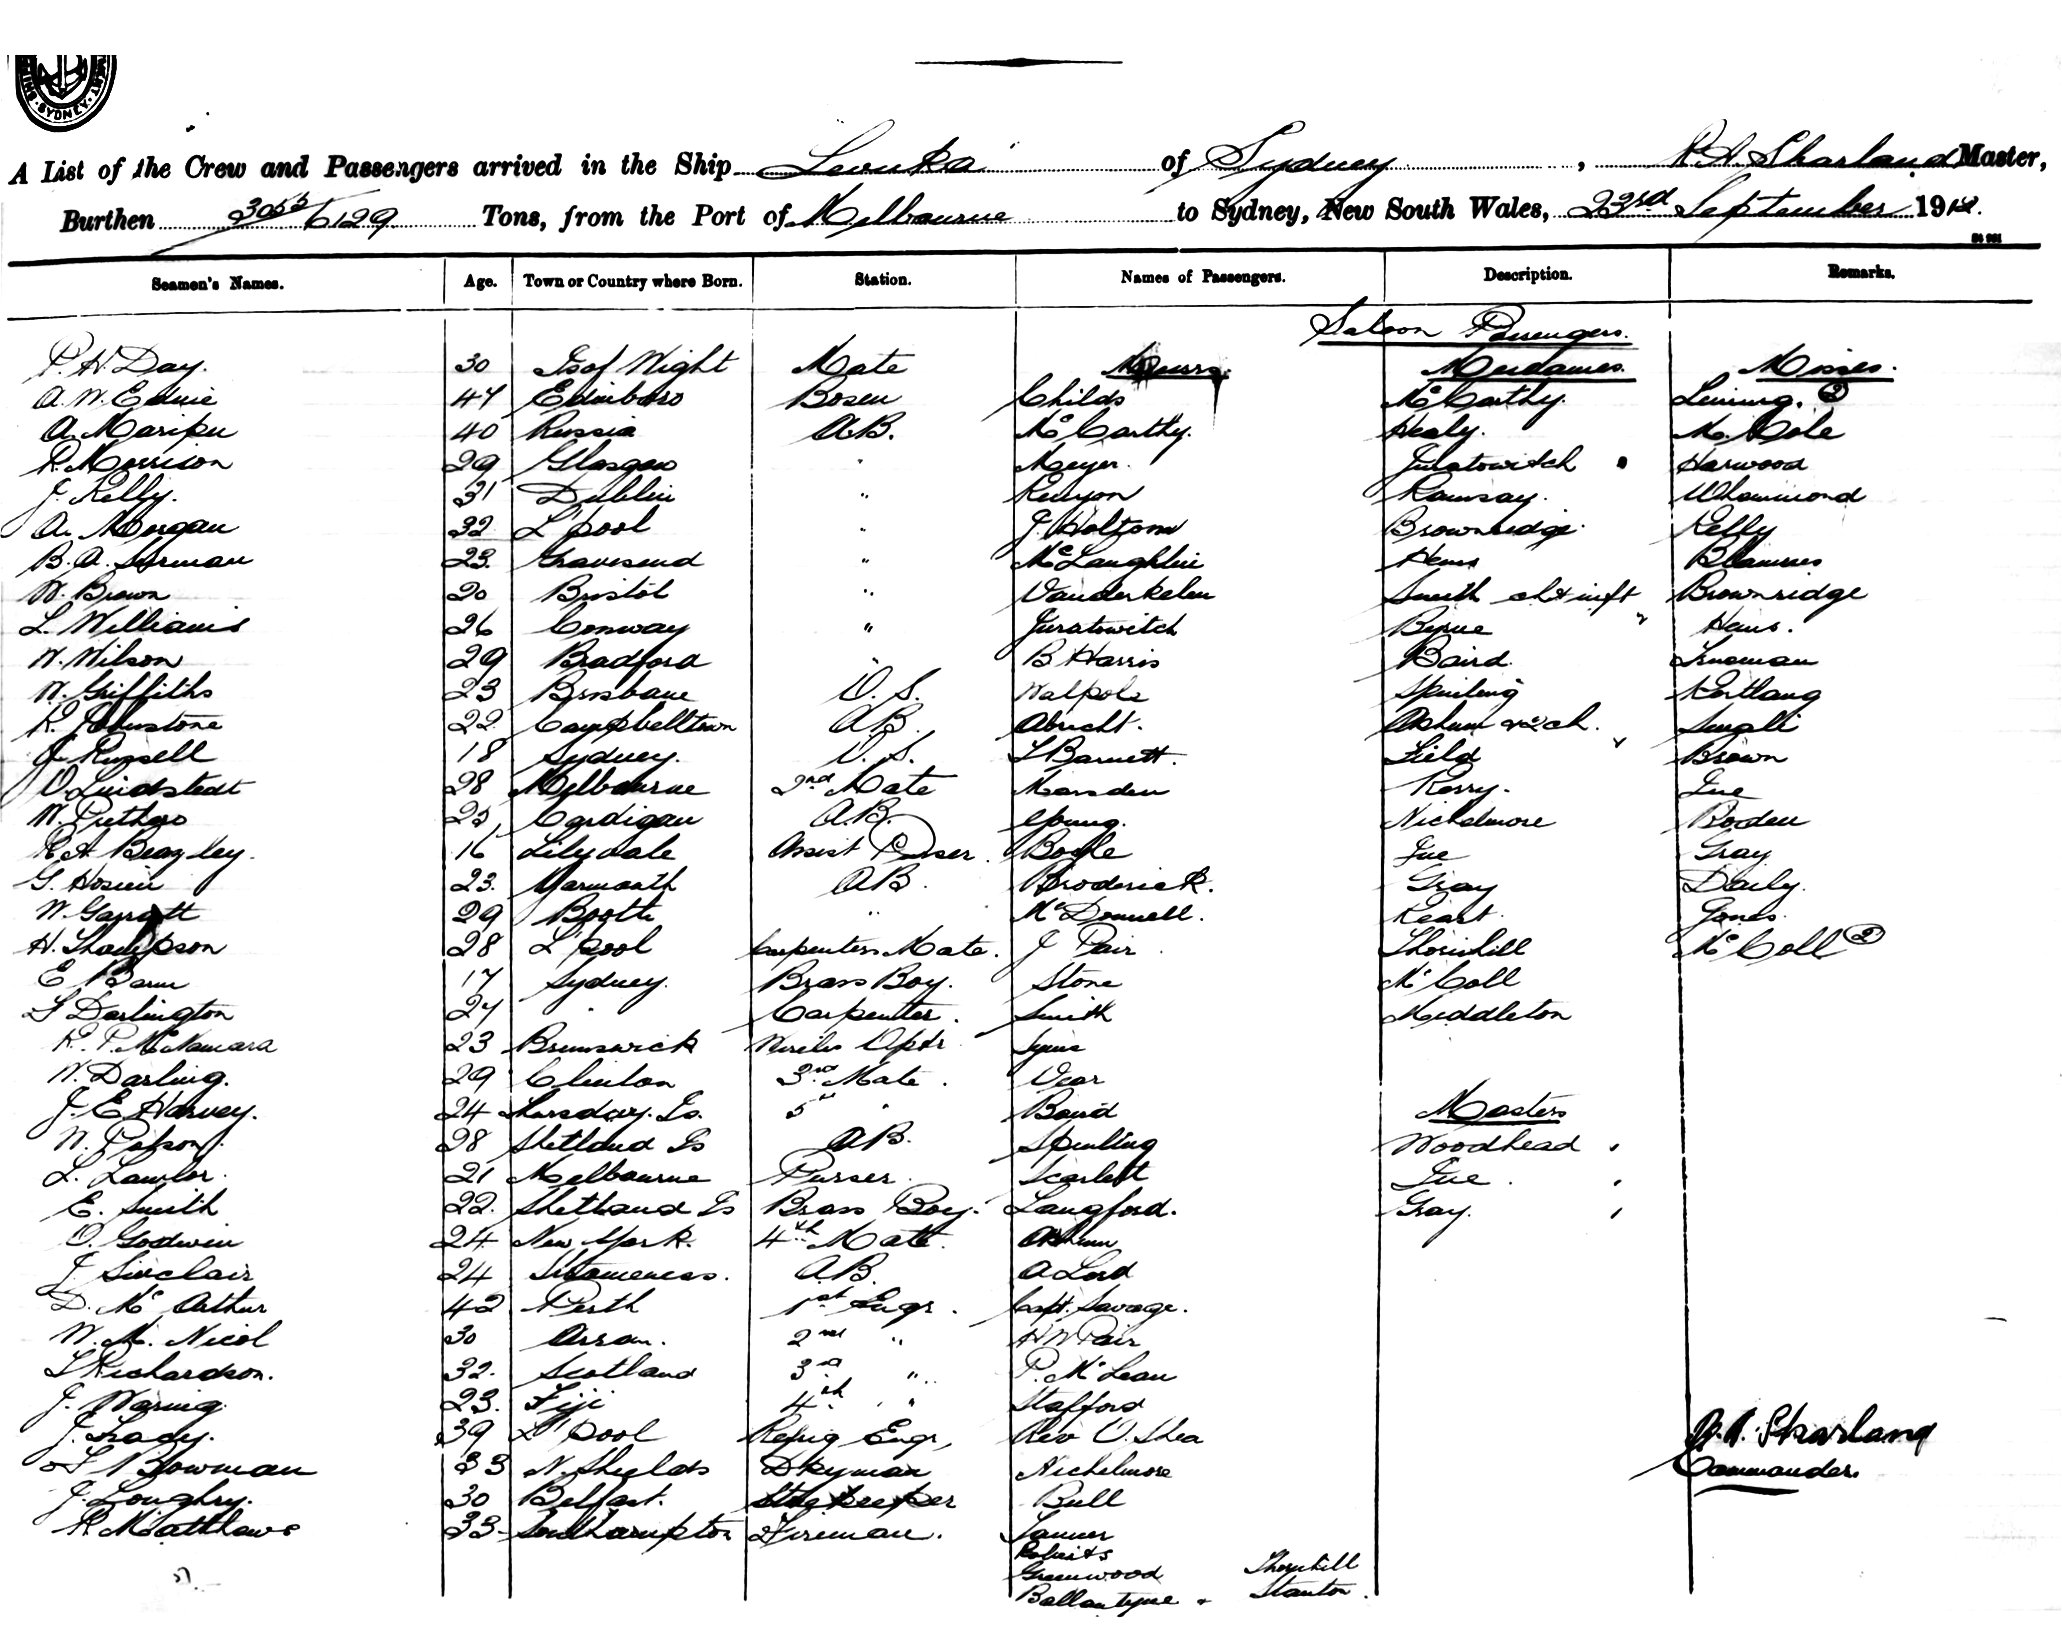 SYDNEY
A List of the Crew and Passengers arrived in the Ship Levuka of Sydney, R. A. Sharland Master,
Burthen 3053/6129 Tons, from the Port of Melbourne to Sydney, New South Wales, 23rd September 1912.
Seamen's Names. Age. Town or Country where Born. Station. Names of Passengers. Description. Remarks.
Saloon Passengers.
P. H. Day. 30 Is of Wight Mate Messrs. Mesdames. Misses.
A. W. Ednie 47 Edinboro Bosen Childs McCarthy. Leining. ②
A. Maripu 40 Russia A.B. McCarthy. Healy. M. Cole
R. Morrison 29 Glasgow " Meyer. Juratowitch " Harwood
J. Kelly. 31 Dublin " Kenyon Ramsay. Whammond
A. Morgan 32 L'pool " J. Holtom Brownridge. Kelly
B. A. Surman 23. Gravesend " McLaughlin Hems
W. Brown 20 Bristol " Vanderkelen Smith ch & inft Brownridge
L. Williams 26 Conway " Juratowitch Byrne " Hems.
W. Wilson 29 Bradford " B Harris Baird. Trueman
W. Griffiths 23 Brisbane O. S. Walpole Spurling Kortlang
R. Johnstone 22. Campbelltown A.B. Abricht. Ahearn & 2 ch.
J. Russell 18 Sydney. O. S. L Barnett. Field " Brown
O Lindstedt 28 Melbourne 2nd Mate Marsden Kerry. Jue
W. Prethero 25 Cardigan A.B. Young. Nichelmore Boden
R A Beazley. 16 Lilydale Assist Purser. Boyle Jue Gray
G. Hosien 23. Yarmouth A.B. Broderick. Gray Daily.
W. Garratt 29 Bootle " McDonnell. Keart. Jones.
H. Thompson 28 L'pool Carpenters Mate. J Pair. Thornhill McColl ②
E Barm 17 Sydney. Brass Boy. Stone McColl
S Darlington 24 " Carpenter. Smith Middleton
R. P. McNamara 23 Brunswick Wireless Optr Syme
W. Darling. 29 Clinton 3rd Mate. Vear
J. E Harvey. 24 Thursday. Is. 5th " Baird Masters
28 Shetland Is A.B. Spurling Woodhead "
L. Lawlor. 21 Melbourne Purser. Scarlett Jue. "
E. Smith 22. Shetland Is Brass Boy. Langford. Gray. "
O. Godwin 24 New York. 4th Mate.
J Sinclair 24 Stromness. A.B. A Lord
D. McArthur 42 Perth 1st Engr. Capt. Savage.
W. M. Nicol 30 Arran. 2nd " H W Pair
L Richardson. 32. Scotland 3rd " P. McLean
J. Waring. 23. Fiji 4th " Stafford
J. Tracy. 39 L'pool Refrig Engr, Rev O. Shea
Bowman 33 N. Shields Dkyman Nichelmore
J. Loughry. 30 Belfast. Storekeeper Bull
R. Matthews 33 Southampton Fireman. Tanner
Roberts
Greenwood Thornhill
Ballantyne Stanton.
R. A. Sharland
Commander.